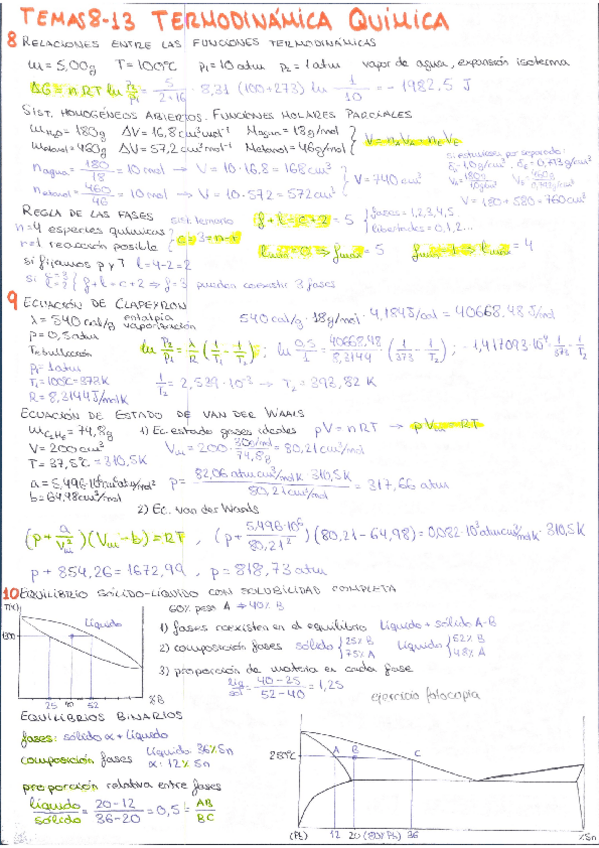 TEMAS 8-13 TERMODINÁMICA QUÍMICA
8 RELACIONES ENTRE LAS FUNCIONES TERMODINÁMICAS
m = 5,00g T = 100°C p₁ = 10 atm p₂ = 1 atm vapor de agua, expansión isoterma
ΔG = nRT ln p₂/p₁ = 5/2+16 · 8,31 (100+273) ln 1/10 = -1982.5 J
SIST. HOMOGÉNEOS ABIERTOS. FUNCIONES MOLARES PARCIALES
m H₂O = 180g ΔV = 16,8 cm³mol⁻¹ Magua = 18g/mol
metanol = 460g ΔV = 57,2 cm³mol⁻¹ Metanol = 46g/mol } V = nₐVₐ + nₑVₑ
nagua = 180/18 = 10 mol → V = 10·16,8 = 168 cm³
netanol = 460/46 = 10 mol → V = 10·572 = 572 cm³ } V = 740 cm³
si estuvieses por separado:
V = 180 + 580 = 760 cm³
REGLA DE LAS FASES sist. ternario f + l = c + 2 = 5 { fases = 1,2,3,4,5
libertades = 0,1,2...
n = 4 especies químicas
r = 1 reacción posible } c = 3 = n - r
lmin = 0 → fmax = 5 fmin = 1 → lmax = 4
si fijamos p y T l = 4-2 = 2
si c = 3 l = 2 { f + l = c + 2 → f = 3 pueden coexistir 3 fases
9 ECUACIÓN DE CLAPEYRON
λ = 540 cal/g entalpía vaporización 540 cal/g · 18g/mol · 4,184J/cal = 40668.48 J/mol
p = 0,5 atm
Tebullición
p₁ = 1 atm
T₁ = 100°C = 373K
R = 8,3144 J/molK
ln p₂/p₁ = λ/R (1/T₁ - 1/T₂) ; ln 0,5/1 = 40668,48/8,3144 (1/373 - 1/T₂) ;
1/T₂ = 2,539·10⁻³ → T₂ = 393,82 K
ECUACIÓN DE ESTADO DE VAN DER WAALS
m C₂H₆ = 74,8g 1) Ec. estado gases ideales pV = nRT → pVm = RT
V = 200 cm³ Vm = 200 · 30g/mol/74,8g = 80,21 cm³/mol
T = 37,5°C = 310,5K
a = 5,496·10⁶ cm⁶ atm/mol²
b = 64,98 cm³/mol
p = 82,06 atm cm³/molK · 310,5K / 80,21 cm³/mol = 317,66 atm
2) Ec. van der Waals
(p + a/Vm²)(Vm - b) = RT , (p + 5,496·10⁶/80,21²)(80,21 - 64,98) = 0,082·10³ atm cm³/molK · 310,5K
p + 854,26 = 1672,99 , p = 818,73 atm
10 EQUILIBRIO SÓLIDO-LÍQUIDO CON SOLUBILIDAD COMPLETA
T(K) 60% peso A → 40% B
líquido
1300
25 40 52 %B
1) fases coexisten en el equilibrio líquido + sólido A-B
2) composición fases sólido { 25% B 75% A líquido { 52% B 48% A
3) proporción de materia en cada fase
liq/sol = 40-25/52-40 = 1,25
ejercicio fotocopia
EQUILIBRIOS BINARIOS
fases: sólido α + líquido
composición fases líquido 36% Sn
α · 12% Sn
proporción relativa entre fases
líquido/sólido = 20-12/36-20 = 0,5 = AB/BC
A B C
(Pb) 12 20 (80% Pb) 36 % Sn